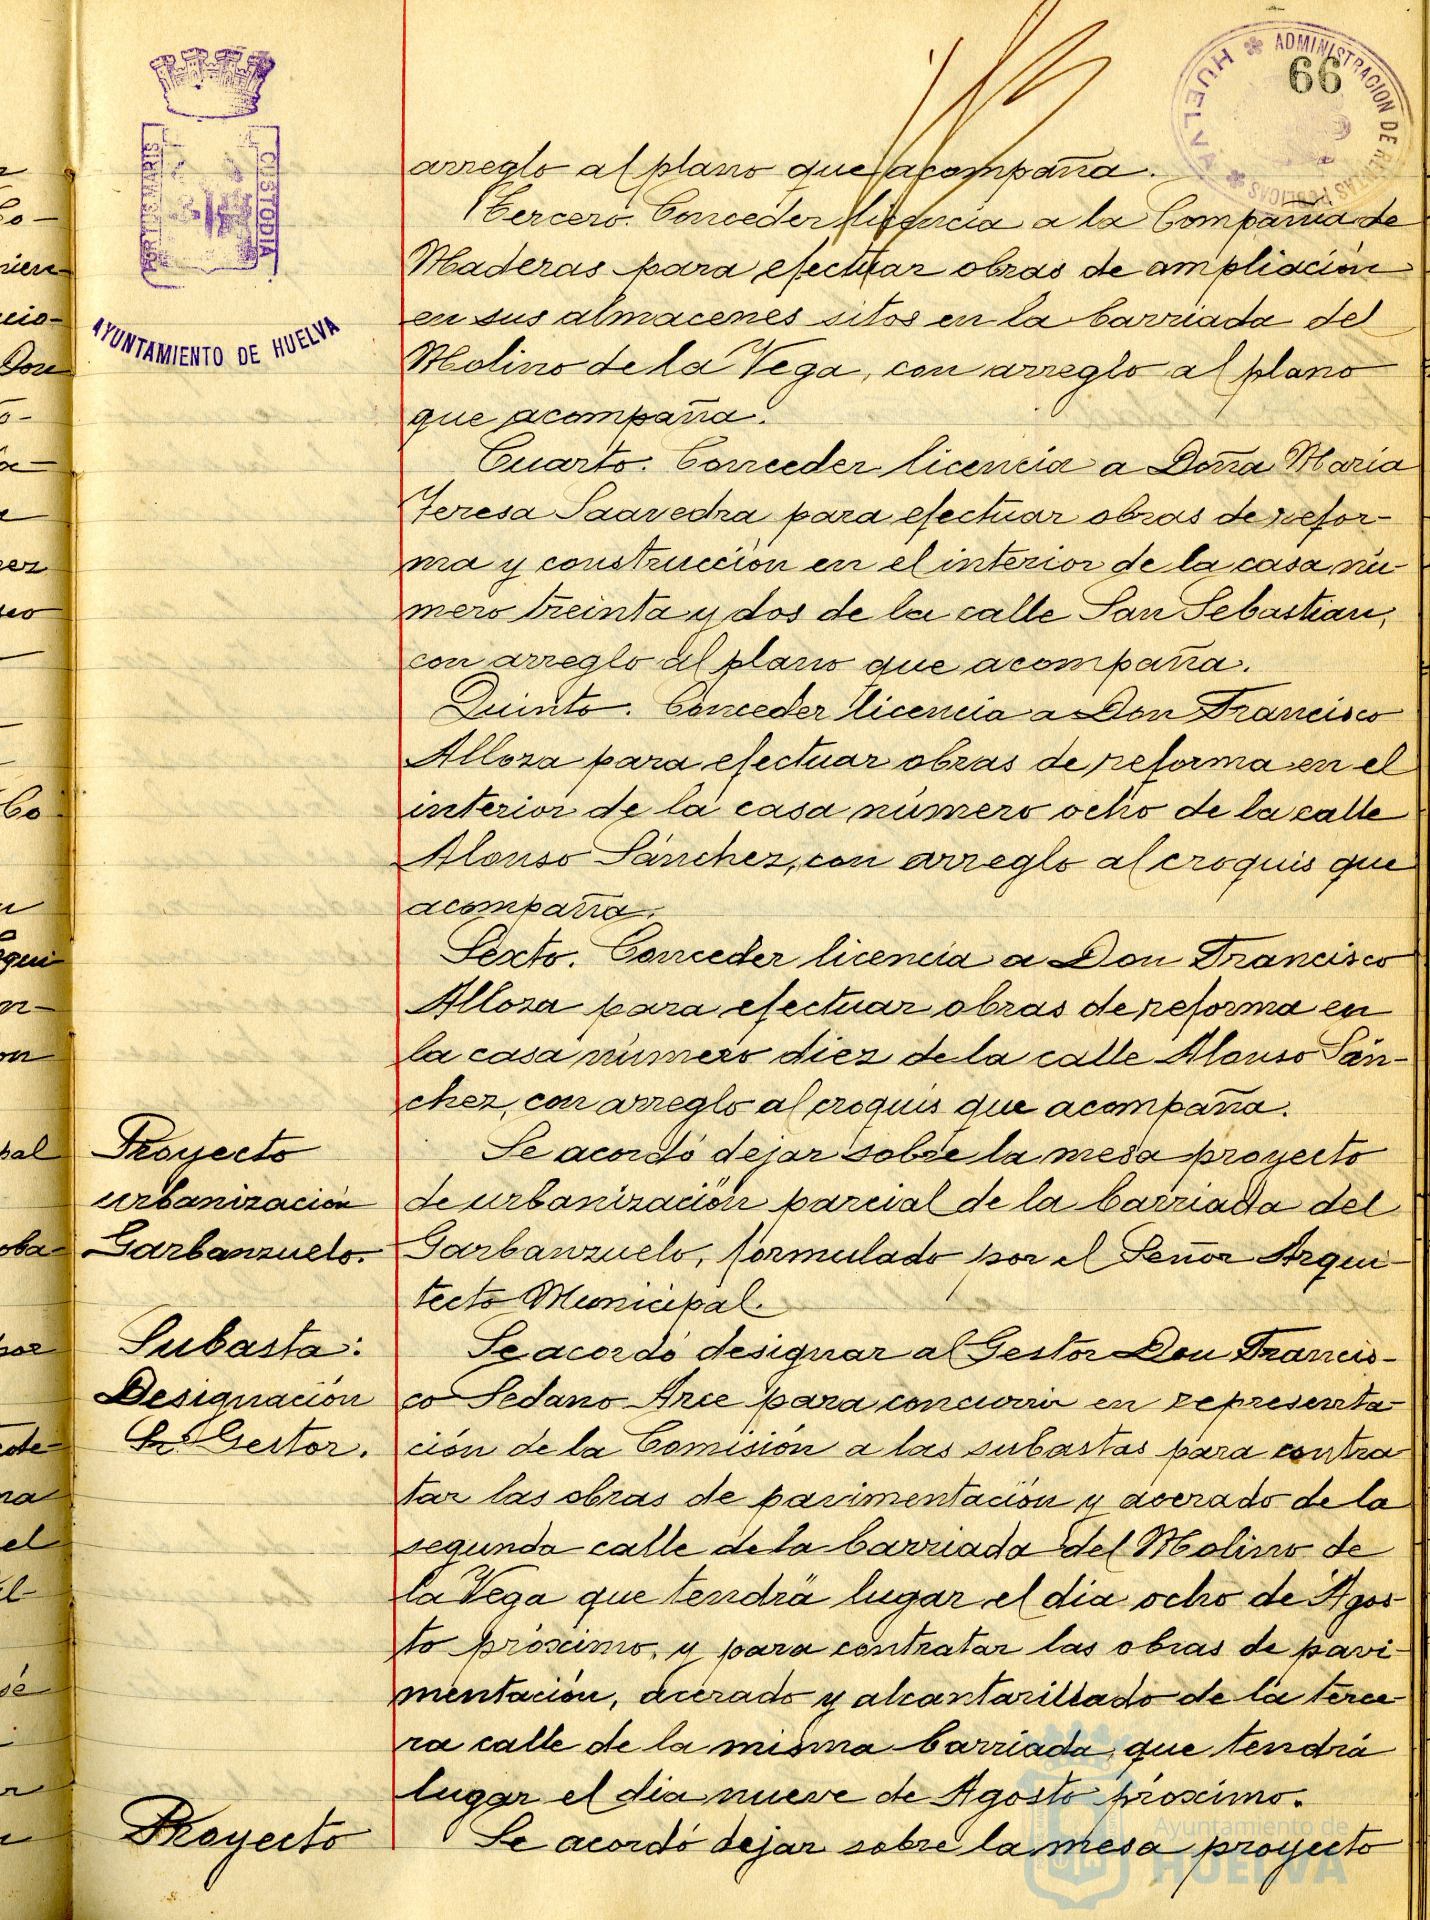 66
ADMINISTRACION DE RENTAS PUBLICAS
HUELVA
PORTUS MARIS
CUSTODIA
AYUNTAMIENTO DE HUELVA
arreglo al plano que acompaña.
Tercero. Conceder licencia a la Compañia de
Maderas para efectuar obras de ampliación
en sus almacenes sitos en la barriada del
Molino de la Vega, con arreglo al plano
que acompaña.
Cuarto. Conceder licencia a Doña Maria
Teresa Saavedra para efectuar obras de refor-
ma y construcción en el interior de la casa nú-
mero treinta y dos de la calle San Sebastian,
con arreglo al plano que acompaña.
Quinto. Conceder licencia a Don Francisco
Alloza para efectuar obras de reforma en el
interior de la casa número ocho de la calle
Alonso Sánchez, con arreglo al croquis que
acompaña.
Sexto. Conceder licencia a Don Francisco
Alloza para efectuar obras de reforma en
la casa número diez de la calle Alonso Sán-
chez, con arreglo al croquis que acompaña.
Proyecto
urbanización
Garbanzuelo.
Se acordó dejar sobre la mesa proyecto
de urbanización parcial de la barriada del
Garbanzuelo, formulado por el Señor Arqui-
tecto Municipal.
Subasta:
Designación
Sr Gestor.
Se acordó designar al Gestor Don Francis-
co Sedano Arce para concurrir en representa-
ción de la Comisión a las subastas para contra-
tar las obras de pavimentación y acerado de la
segunda calle de la barriada del Molino de
la Vega que tendrá lugar el dia ocho de Agos-
to próximo, y para contratar las obras de pavi-
mentación, acerado y alcantarillado de la terce-
ra calle de la misma barriada, que tendrá
lugar el dia nueve de Agosto próximo.
Proyecto
Se acordó dejar sobre la mesa proyecto
Ayuntamiento de
HUELVA